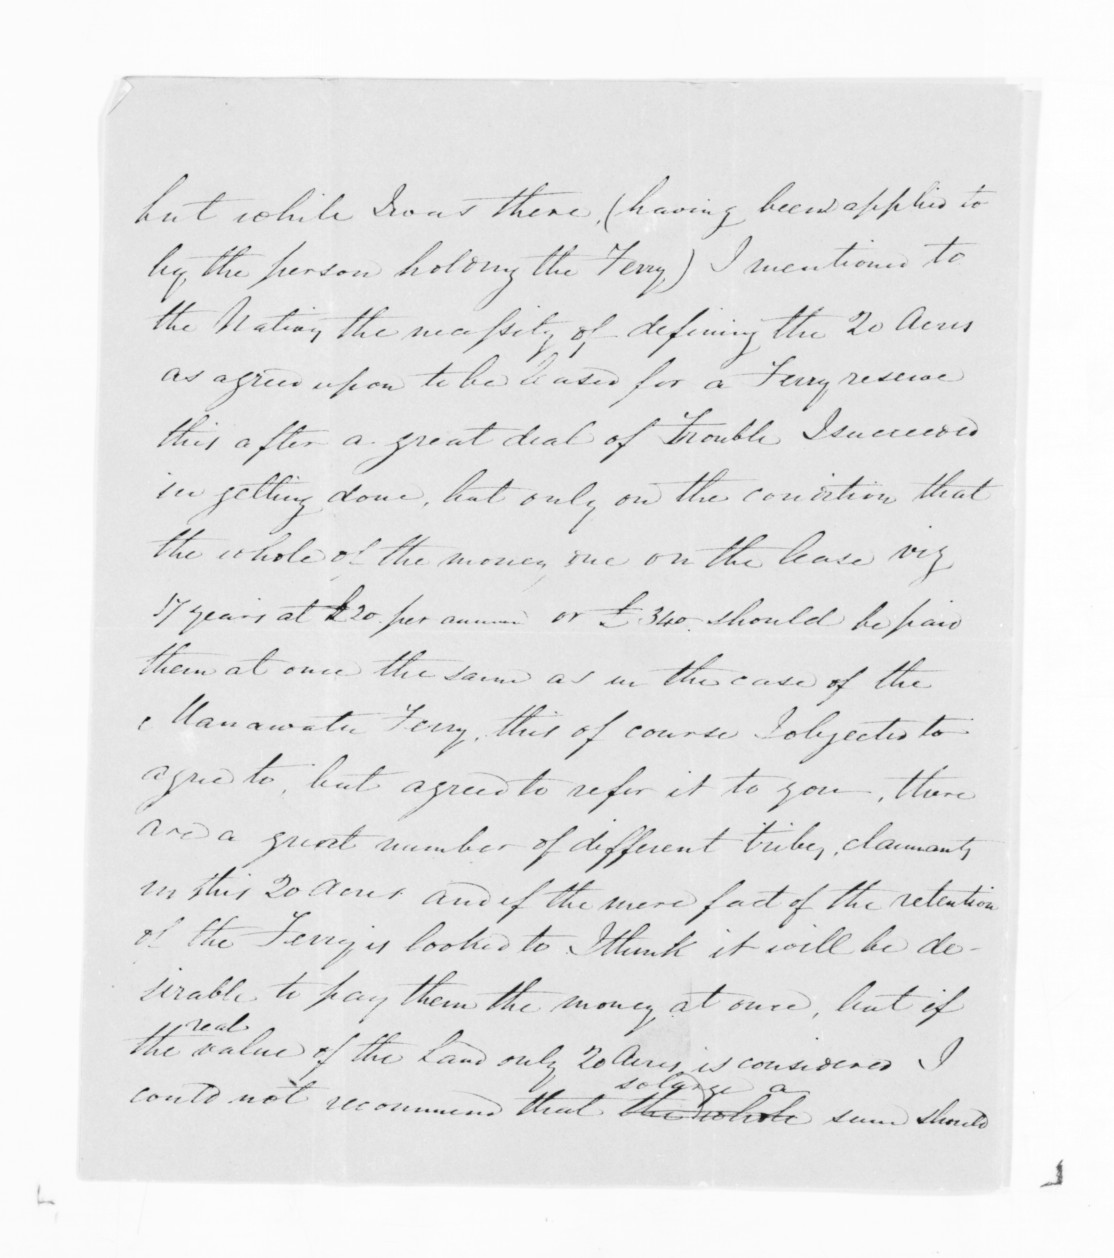 but while I was there, (having been applied to
by the person holding the Ferry) I mentioned to
the Natives the necessity of defining the 20 Acres
as agreed upon to be leased for a Ferry reserve
this after a great deal of Trouble I succeeded
in getting done, but only on the condition that
the whole of the money due on the lease viz
17 years at £20 per annum or £340. should be paid
them at once the same as in the case of the
Manawatu Ferry, this of course I objected to
agree to, but agreed to refer it to you, there
are a great number of different tribes, claimants
in this 20 Acres and if the mere fact of the retention
of the Ferry is looked to I think it will be de-
sirable to pay them the money at once, but if
the real value of the Land only 20 Acres is considered I
could not recommend that the whole so large a sum should